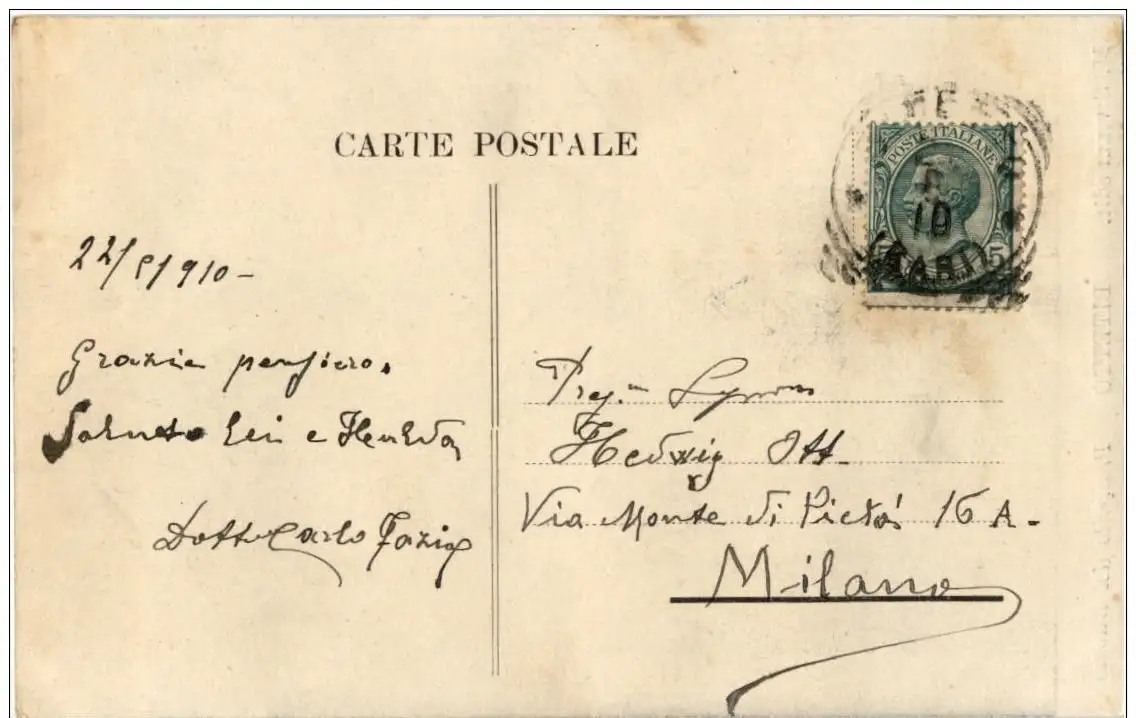 CARTE POSTALE
POSTE ITALIANE
5
10
22/5/910 -
Grazie pensiero.
Saluto Lei e
Dott Carlo Fazio
Preg.
Hedwig Ott -
Via Monte di Pietà 16 A -
Milano